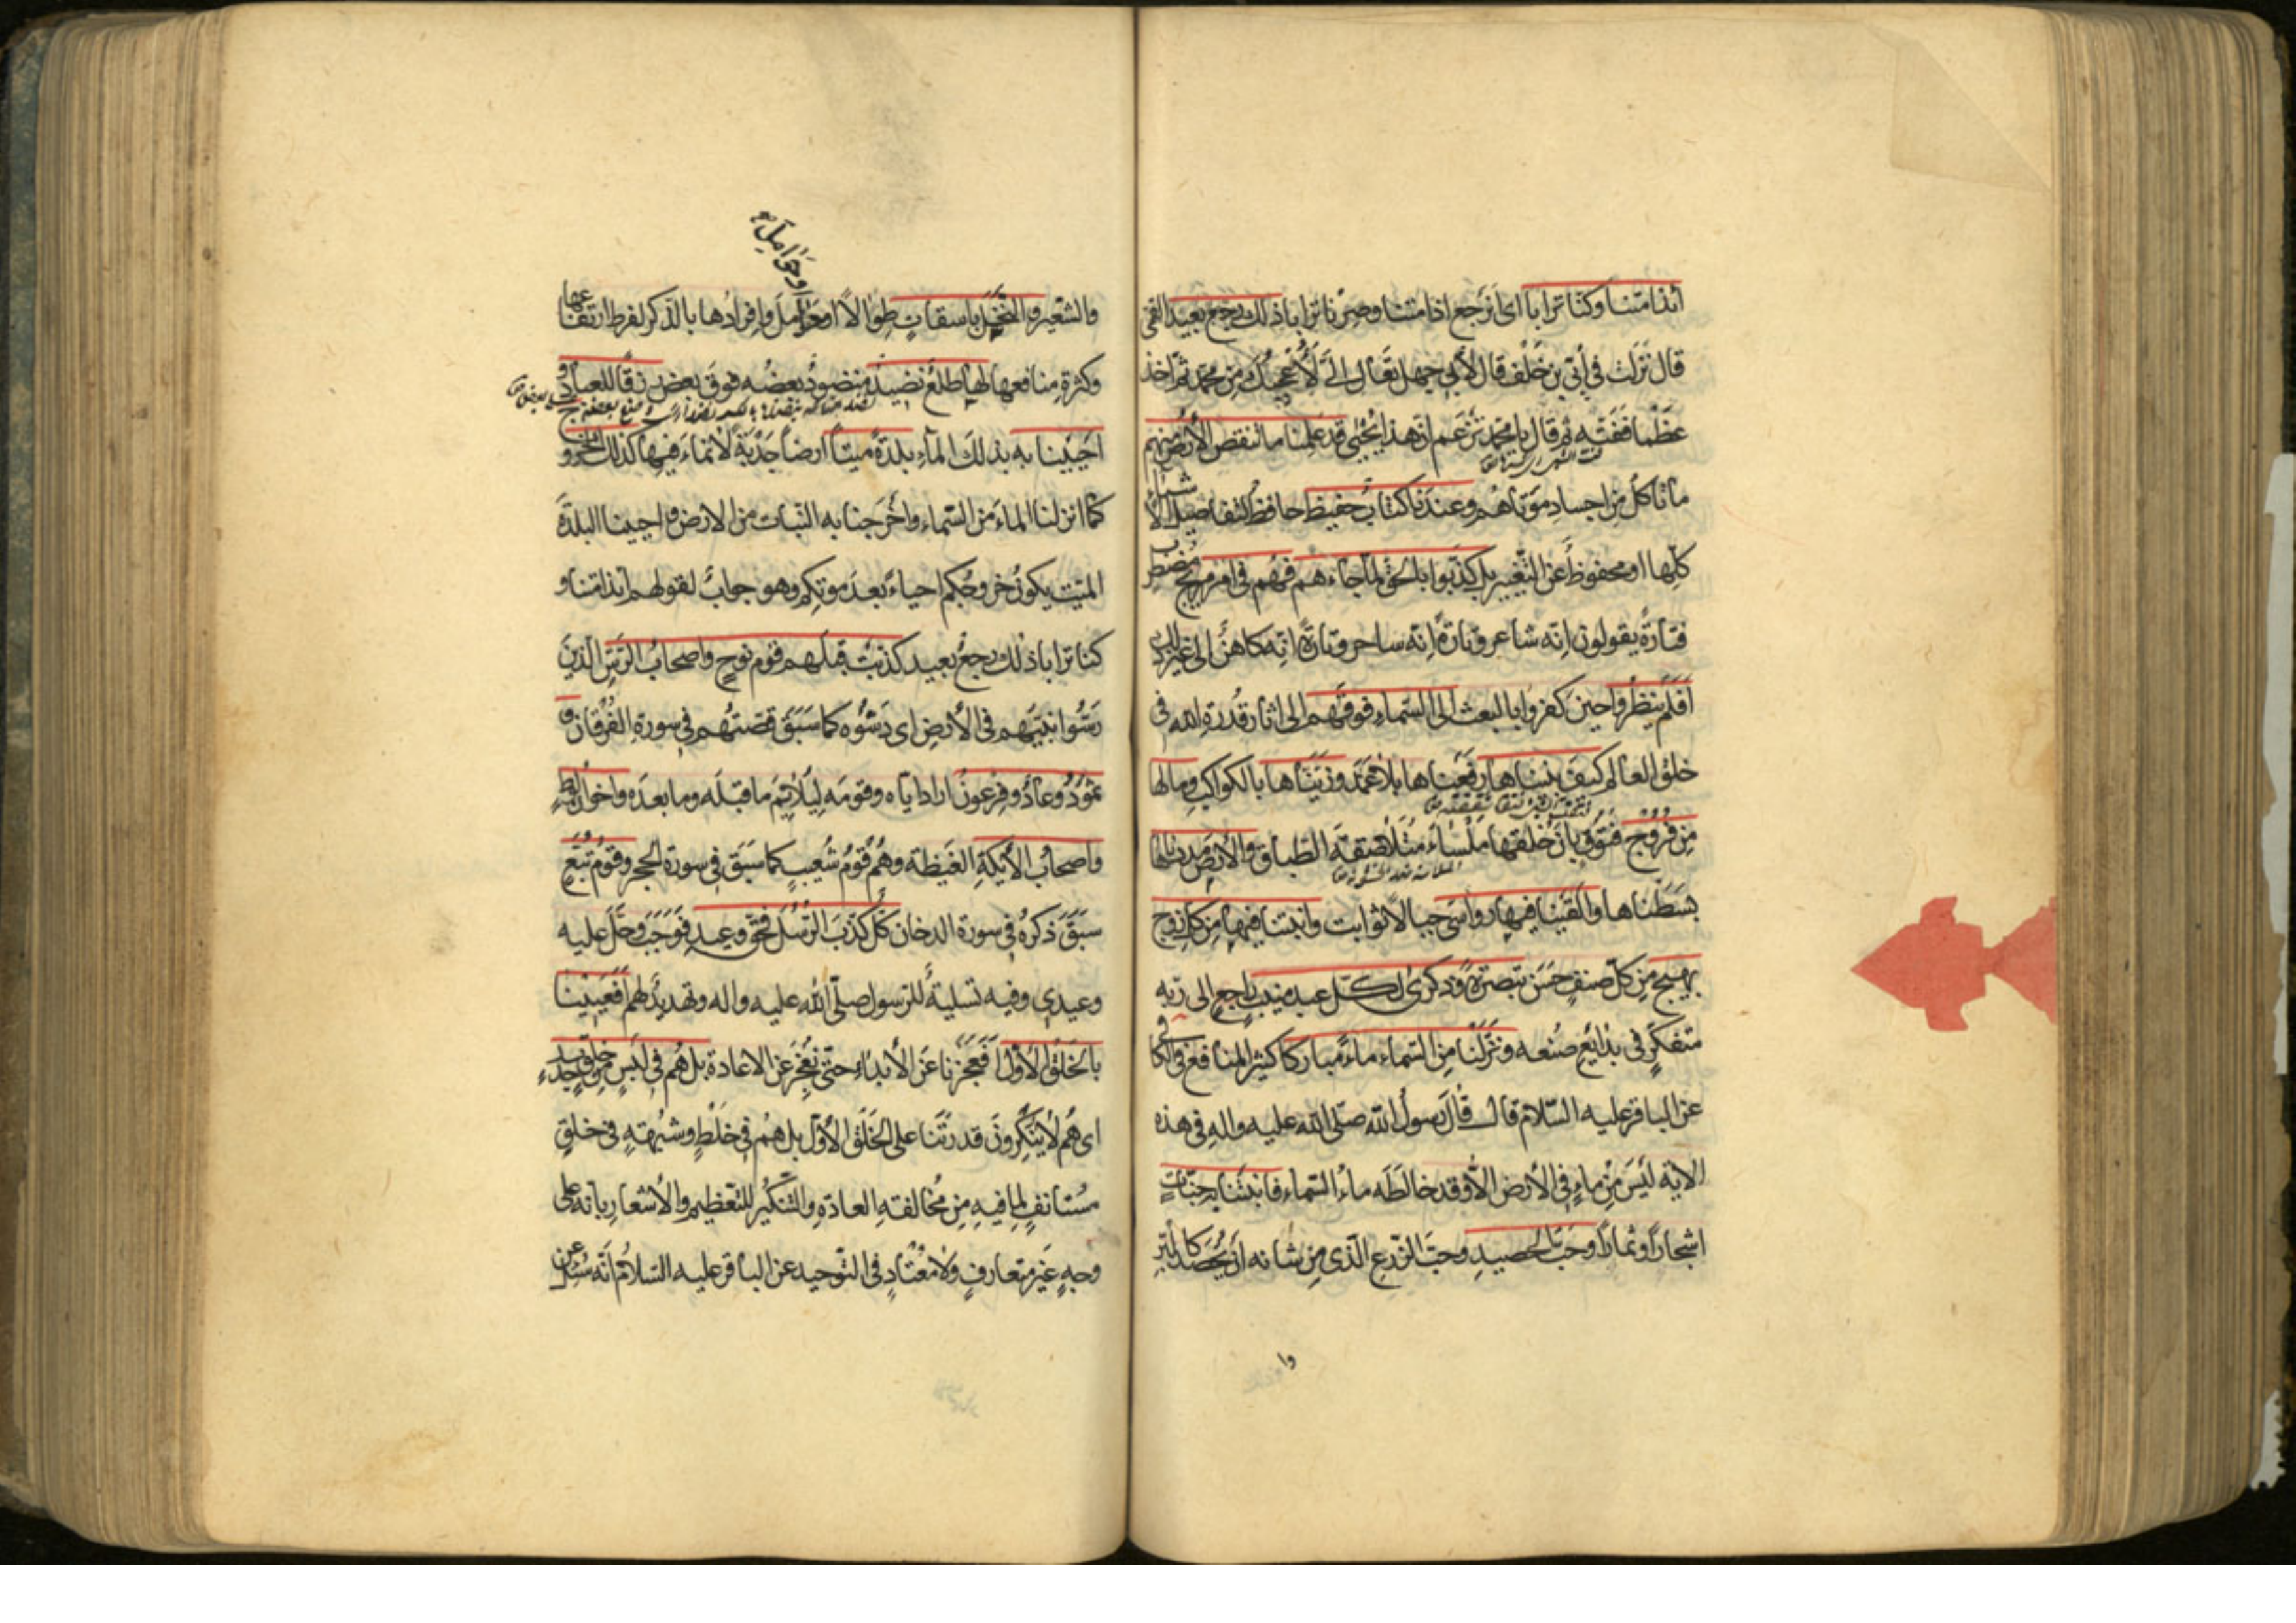 أئذا متنا وكنا ترابا اى نرجع اذا متنا وصرنا ترابا ذلك رجع بعيد القمي
قال نزلت في أبي بن خلف قال لأبي جهل تعال الي لأعجبك من محمد ثم اخذ
عظما ففته ثم قال يا محمد تزعم ان هذا يحيى قد علمنا ما تنقص الأرض منهم
ما تأكل من اجساد موتاهم وعندنا كتاب حفيظ حافظ لتفاصيل الأشياء
كلها او محفوظ عن التغيير بل كذبوا بالحق لما جاءهم فهم في امر مريج مضطرب
فتارة يقولون انه شاعر وتارة انه ساحر وتارة انه كاهن الى غير ذلك
أفلم ينظروا حين كفروا بالبعث الى السماء فوقهم الى اثار قدرة الله في
خلق العالم كيف بنيناها رفعناها بلا عمد وزيناها بالكواكب وما لها
من فروج فتوق بان خلقها ملساء متلاصقة الطباق والأرض مددناها
بسطناها والقينا فيها رواسى جبالا ثوابت وانبتنا فيها من كل زوج
بهيج من كل صنف حسن تبصرة وذكرى لكل عبد منيب راجع الى ربه
متفكر في بدائع صنعه ونزلنا من السماء ماء مباركا كثير المنافع في الكافي
عن الباقر عليه السلام قال قال رسول الله صلى الله عليه واله في هذه
الاية ليس من ماء في الأرض الا وقد خالطه ماء السماء فانبتنا به جنات
اشجارا وثمارا وحب الحصيد وحب الزرع الذي من شانه ان يحصد كالبر
وا
وحوامل
والشعير والنخل باسقات طوالا او حوامل وافرادها بالذكر لفرط ارتفاعها
وكثرة منافعها لها طلع نضيد منضود بعضه فوق بعض رزقا للعباد و
احيينا به بذلك الماء بلدة ميتا ارضا جدبة لا نماء فيها كذلك الخروج
كما انزلنا الماء من السماء واخرجنا به النبات من الارض واحيينا البلدة
الميت يكون خروجكم احياء بعد موتكم وهو جواب لقولهم أئذا متنا و
كنا ترابا ذلك رجع بعيد كذبت قبلهم قوم نوح واصحاب الرس الذين
رسوا نبيهم في الأرض اى دسوه كما سبق قصتهم في سورة الفرقان و
ثمود وعاد وفرعون اراد اياه وقومه ليلائم ما قبله وما بعده واخوان لوط
واصحاب الأيكة الغيظة وهم قوم شعيب كما سبق في سورة الحجر وقوم تبع
سبق ذكره في سورة الدخان كل كذب الرسل فحق وعيد فوجب وحل عليه
وعيدي وفيه تسلية للرسول صلى الله عليه واله وتهديد لهم أفعيينا
بالخلق الأول أفعجزنا عن الأبداء حتى نعجز عن الاعادة بل هم في لبس من خلق جديد
اى هم لا ينكرون قدرتنا على الخلق الأول بل هم في خلط وشبهة في خلق
مستانف لما فيه من مخالفة العادة والتنكير للتعظيم والأشعار بانه على
وجه غير متعارف ولا معتاد في التوحيد عن الباقر عليه السلام انه سئل عن